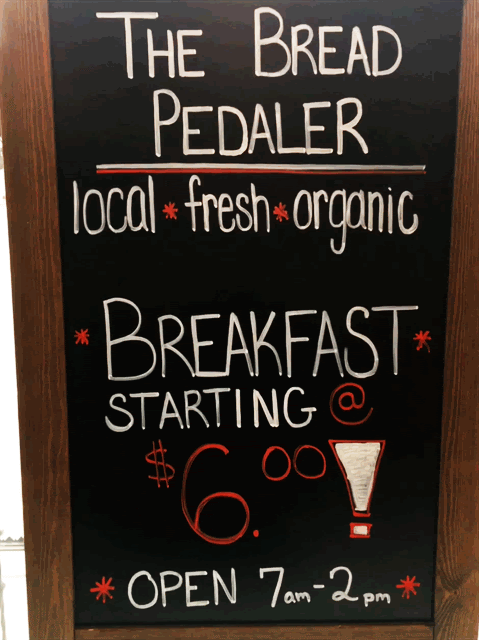 THE BREAD
PEDALER
local * fresh * organic
* BREAKFAST *
STARTING @
$6.00!
* OPEN 7am-2pm *